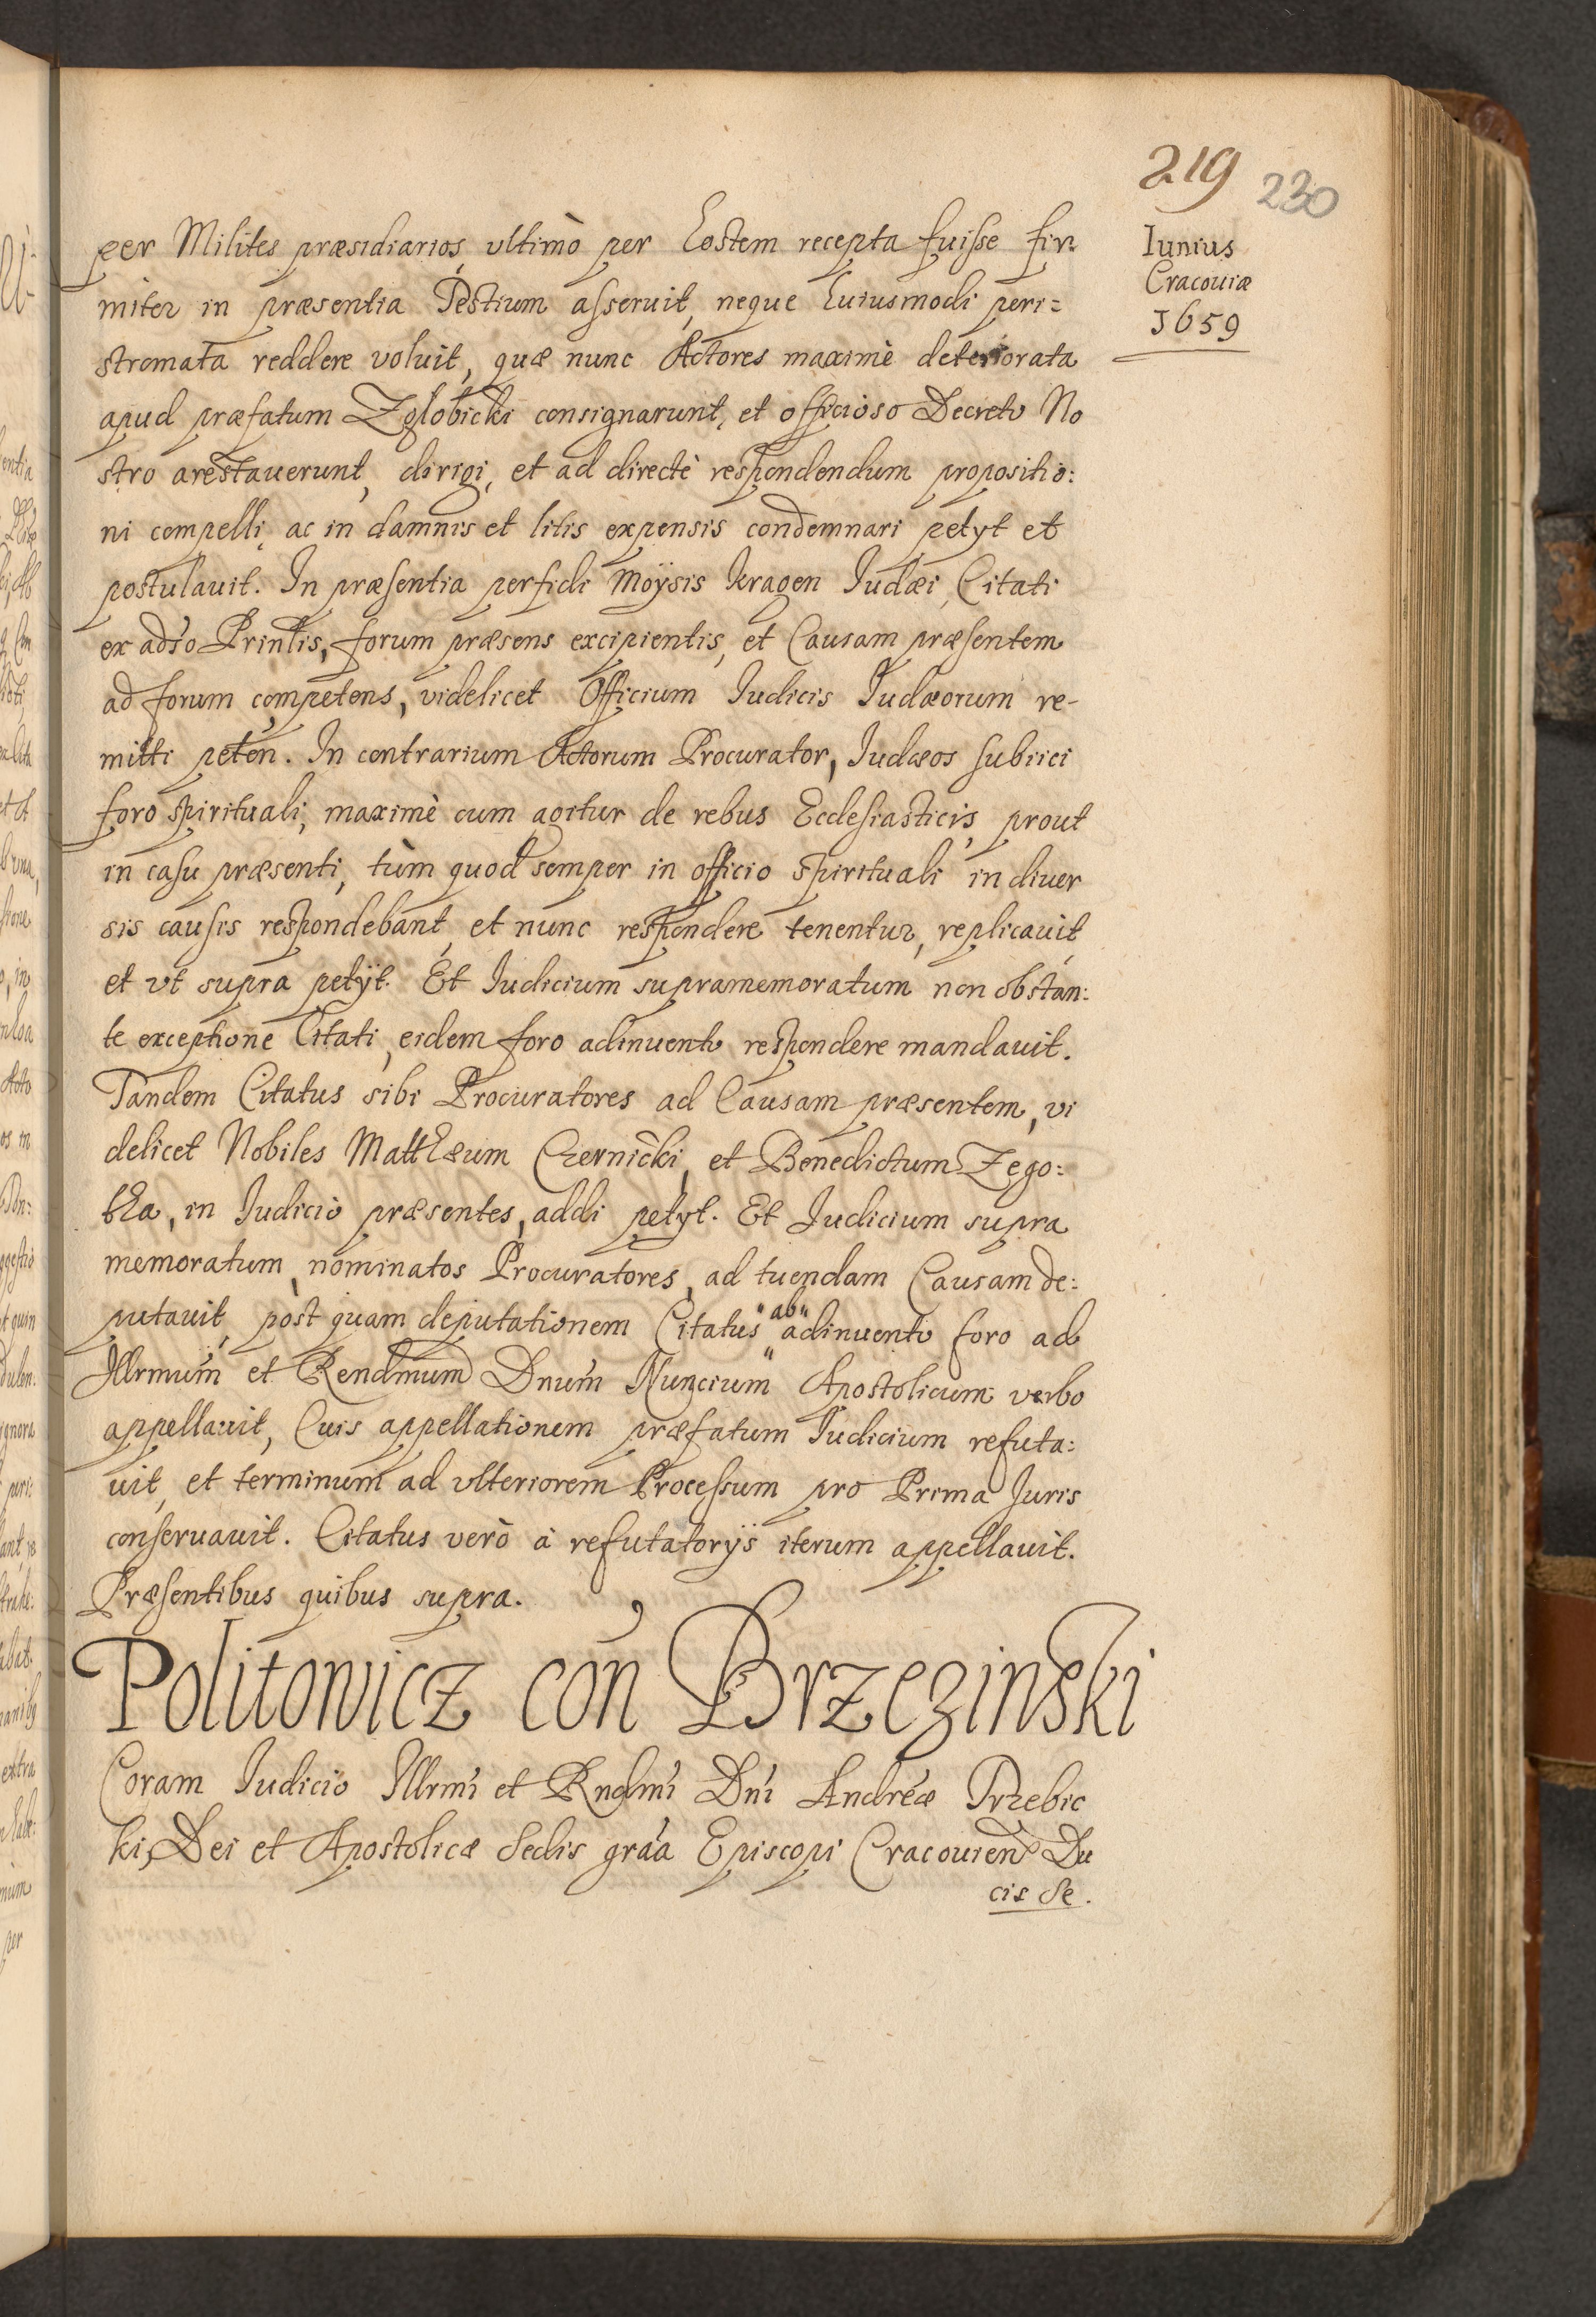 219 230
Iunius
Cracouiæ
1659
per Milites præsidiarios, vltimò per hostem recepta fuisse fir
miter in præsentia Testium asseruit, neque huiusmodi peri=
stromata reddere voluit, quæ nunc Actores maximè deteriorata
apud præfatum Zglobicki consignarunt, et officioso Decreto No
stro arestauerunt, dirigi, et ad directè respondendum propositio:
ni compelli, ac in damnis et litis expensis condemnari petyt et
postulauit. In præsentia perfidi Moÿsis Kragen Iudæi, Citati
ex adso Prinlis, forum præsens excipientis, et Causam præsentem
ad forum competens, videlicet Officium Iudicis Iudæorum re-
mitti peten. In contrarium Actorum Procurator, Iudæos subiici
foro spirituali, maximè cum agitur de rebus Ecclesiasticis, prout
in casu præsenti, tùm quod semper in officio spirituali in diuer
sis causis respondebant, et nunc respondere tenentur, replicauit
et vt supra petÿt. Et Iudicium supramemoratum non obstan:
te exceptione Citati, eidem foro adinuento respondere mandauit.
Tandem Citatus sibi Procuratores ad Causam præsentem, vi
delicet Nobiles Matthæum Czernicki, et Benedictum Zego:
tha, in Iudicio præsentes, addi petyt. Et Iudicium supra
memoratum, nominatos Procuratores, ad tuendam Causam de:
putauit, pòst quam deputationem Citatus "ab" adinuento foro ad
Illrmum et Rendmum Dnum Nuncium Apostolicum verbo
appellauit, Cuis appellationem præfatum Iudicium refuta:
uit, et terminum ad vlteriorem Processum pro Prima Iuris
conseruauit. Citatus verò à refutatorÿs iterum appellauit.
Præsentibus quibus supra.
Politowicz con Brzezinski
Coram Iudicio Illrmi et Rndmi Dni Andreæ Trzebic
ki, Dei et Apostolicæ Sedis graa Episcopi Cracouien Du
cis Se.